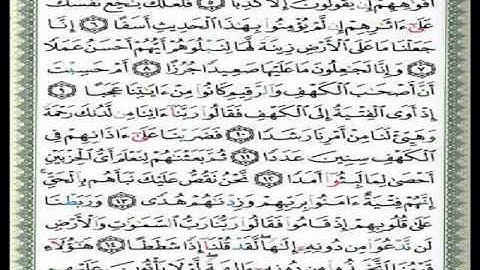 أَفْوَٰهِهِمْ إِن يَقُولُونَ إِلَّا كَذِبًا ۝٥ فَلَعَلَّكَ بَٰخِعٌ نَّفْسَكَ
عَلَىٰٓ ءَاثَٰرِهِمْ إِن لَّمْ يُؤْمِنُوا۟ بِهَٰذَا ٱلْحَدِيثِ أَسَفًا ۝٦ إِنَّا
جَعَلْنَا مَا عَلَى ٱلْأَرْضِ زِينَةً لَّهَا لِنَبْلُوَهُمْ أَيُّهُمْ أَحْسَنُ عَمَلًا
۝٧ وَإِنَّا لَجَٰعِلُونَ مَا عَلَيْهَا صَعِيدًا جُرُزًا ۝٨ أَمْ حَسِبْتَ
أَنَّ أَصْحَٰبَ ٱلْكَهْفِ وَٱلرَّقِيمِ كَانُوا۟ مِنْ ءَايَٰتِنَا عَجَبًا ۝٩
إِذْ أَوَى ٱلْفِتْيَةُ إِلَى ٱلْكَهْفِ فَقَالُوا۟ رَبَّنَآ ءَاتِنَا مِن لَّدُنكَ رَحْمَةً
وَهَيِّئْ لَنَا مِنْ أَمْرِنَا رَشَدًا ۝١٠ فَضَرَبْنَا عَلَىٰٓ ءَاذَانِهِمْ فِى
ٱلْكَهْفِ سِنِينَ عَدَدًا ۝١١ ثُمَّ بَعَثْنَٰهُمْ لِنَعْلَمَ أَىُّ ٱلْحِزْبَيْنِ
أَحْصَىٰ لِمَا لَبِثُوٓا۟ أَمَدًا ۝١٢ نَّحْنُ نَقُصُّ عَلَيْكَ نَبَأَهُم بِٱلْحَقِّ ۚ
إِنَّهُمْ فِتْيَةٌ ءَامَنُوا۟ بِرَبِّهِمْ وَزِدْنَٰهُمْ هُدًى ۝١٣ وَرَبَطْنَا
عَلَىٰ قُلُوبِهِمْ إِذْ قَامُوا۟ فَقَالُوا۟ رَبُّنَا رَبُّ ٱلسَّمَٰوَٰتِ وَٱلْأَرْضِ
لَن نَّدْعُوَا۟ مِن دُونِهِۦٓ إِلَٰهًا ۖ لَّقَدْ قُلْنَآ إِذًا شَطَطًا ۝١٤ هَٰٓؤُلَآءِ
قَوْمُنَا ٱتَّخَذُوا۟ مِن دُونِهِۦٓ ءَالِهَةً ۖ لَّوْلَا يَأْتُونَ عَلَيْهِم